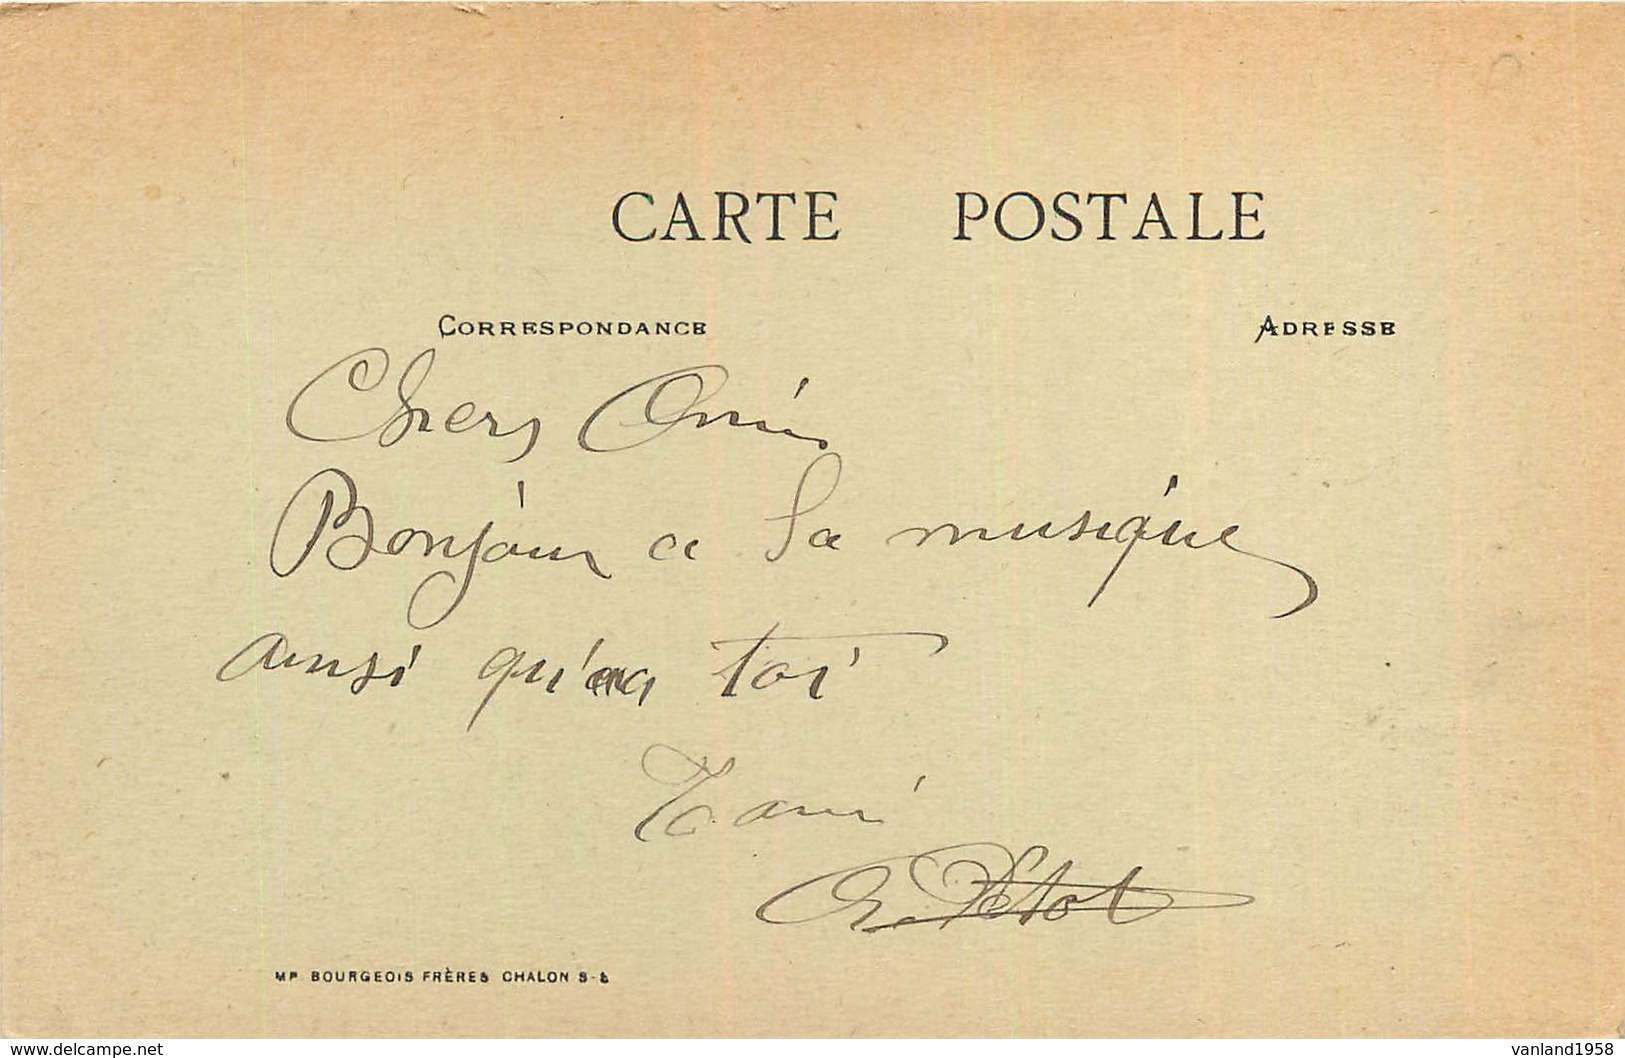 CARTE POSTALE
CORRESPONDANCE
ADRESSE
Chers Amis
Bonjour a la musique
ainsi qu'a toi
T ami
Petot
IMP. BOURGEOIS FRÈRES CHALON S-S
www.delcampe.net
vanland1958